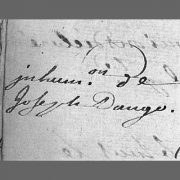 inhum.on de
Joseph Dauge.